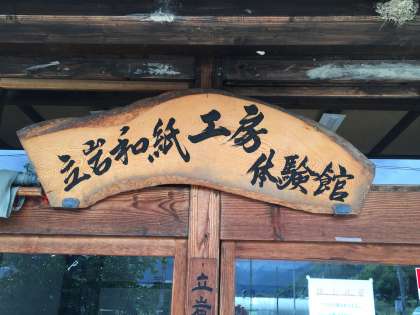 立岩和紙工房
体験館
立岩